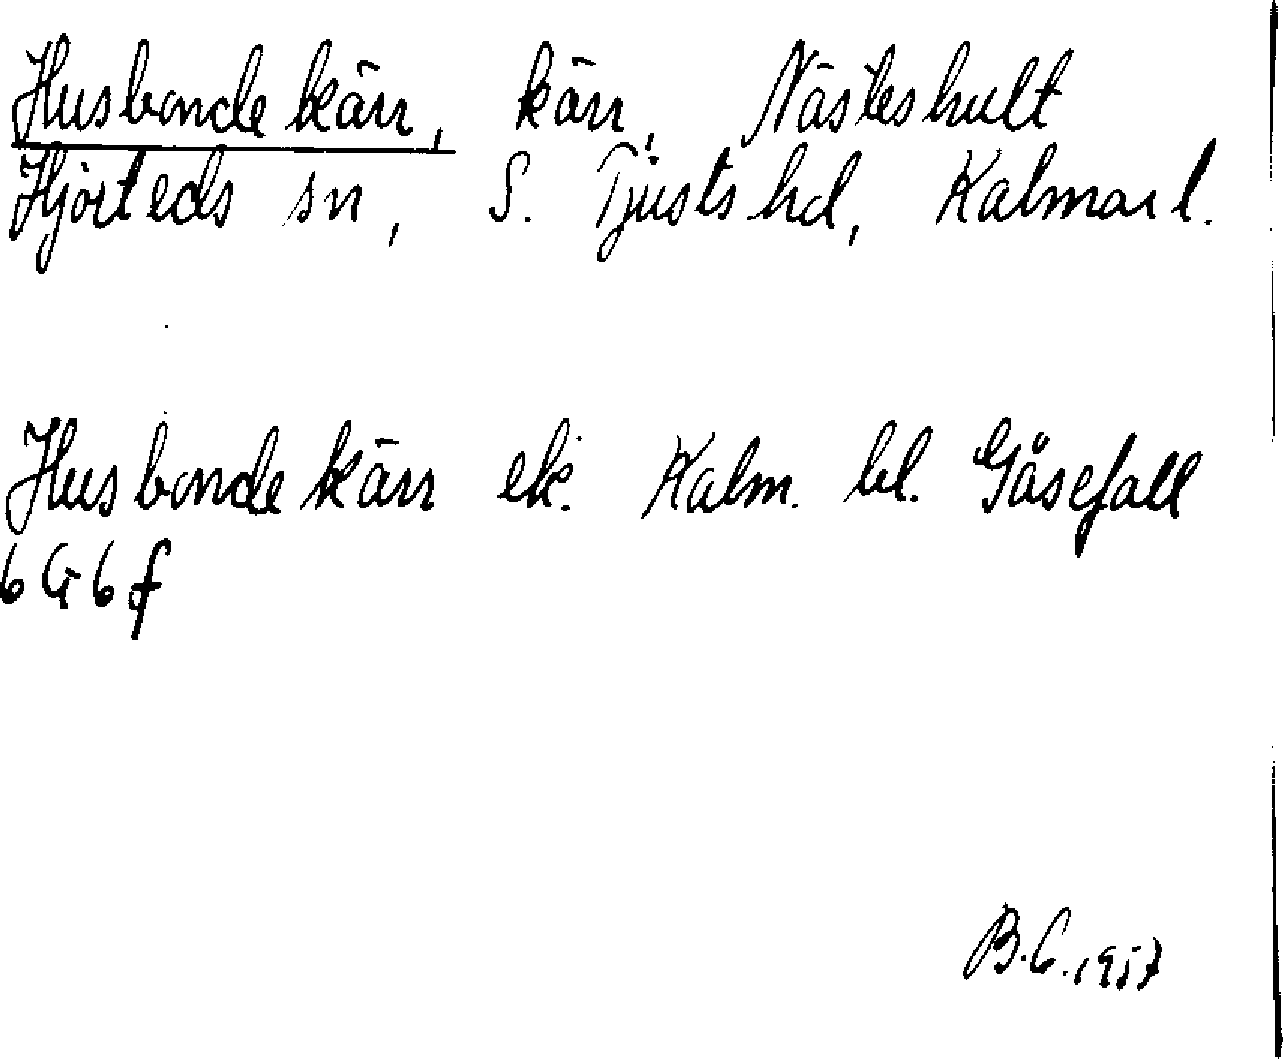 Husbondekärr, kärr, Nästeshult
Hjorteds sn, S. Tjusts hd, Kalmar l.
Husbondekärr ek. Kalm. bl. Gåsefall
6 G 6 f
B.C. 1957